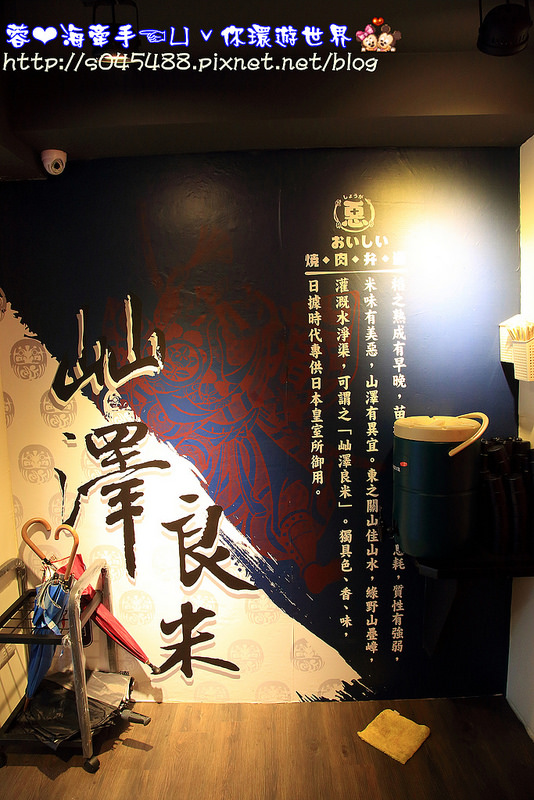 蓉❤海牽手ㄩˇ你環遊世界
http://s045488.pixnet.net/blog
しょうが
惡
おいしい
燒・肉・弁・
稻之熟成有早晚，苗
息耗，質性有強弱，
米味有美惡，山澤有異宜。東之關山佳山水，綠野山疊嶂，
灌溉水淨渠，可謂之「屾澤良米」。獨具色、香、味，
日據時代專供日本皇室所御用。
屾澤
良米